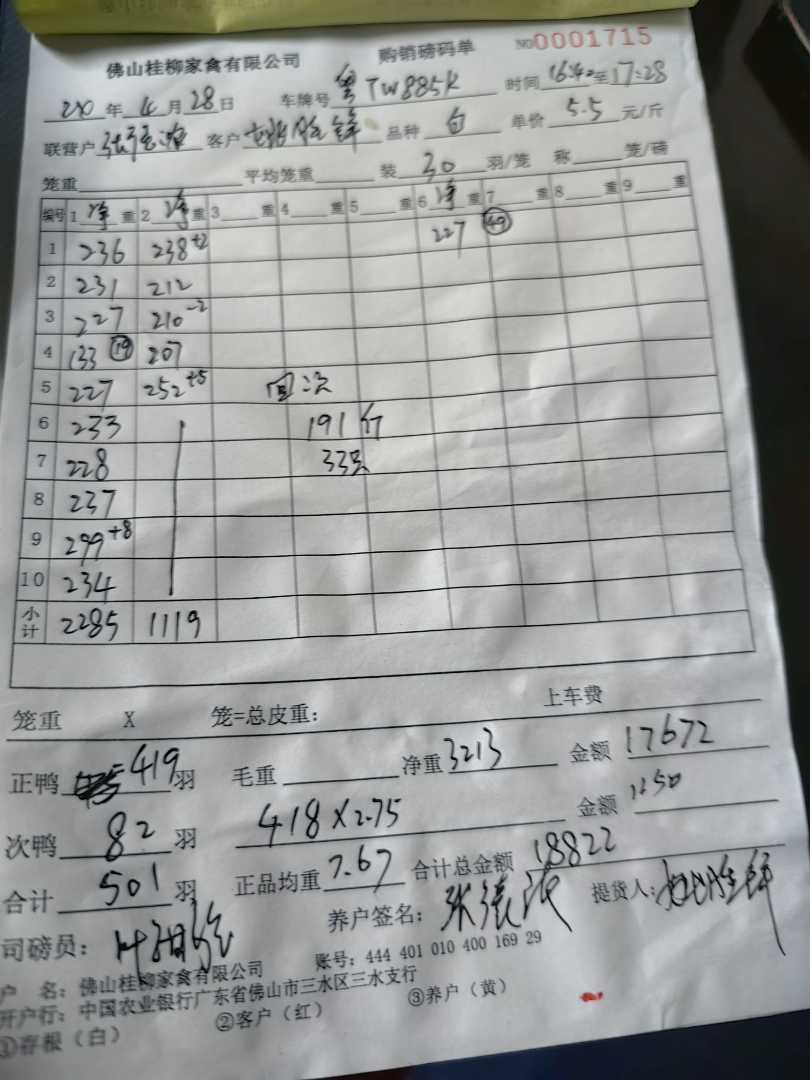 佛山桂柳家禽有限公司 购销磅码单 NO0001715
年 4 月 28 日 车牌号 粤TW885K 时间 16:42 至 17:28
联营户 张 客户 胜锋 品种 白 单价 5.5 元/斤
笼重 平均笼重 装 30 羽/笼 称 笼/磅
编号 1 净 重 2 净 重 3 重 4 重 5 重 6 净 重 7 重 8 重 9 重
1 236 238+2 227 49
2 231 212
3 227 210-2
4 133 19 207
5 227 252+5 回次
6 233 191斤
7 228 33只
8 237
9 299+8
10 234
小计 2285 1119
笼重 X 笼=总皮重: 上车费
正鸭 419 羽 毛重 净重 3213 金额 17672
次鸭 82 羽 418X2.75 金额 1150
合计 501 羽 正品均重 7.67 合计总金额 18822
司磅员: 养户签名: 张 提货人: 胜锋
户 名: 佛山桂柳家禽有限公司 账号: 444 401 010 400 169 29
开户行: 中国农业银行广东省佛山市三水区三水支行
①存根(白) ②客户(红) ③养户(黄)